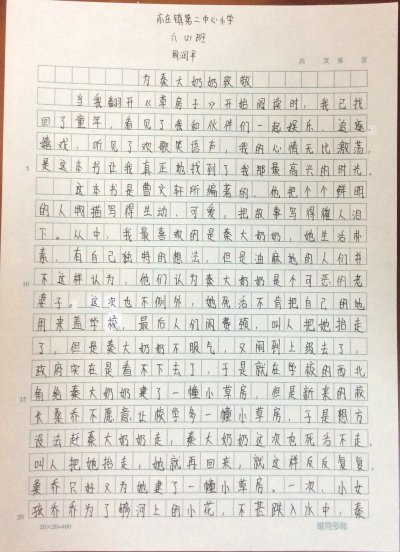 东庄镇第二中心小学
六(2)班
周润苹
共 页 第 页
为秦大奶奶致敬
当我翻开《草房子》开始阅读时,我已找
回了童年,看见了我和伙伴们一起娱乐,追逐
嬉戏,听见了欢歌笑语声,我的心情无比激荡,
5
是这本书让我真正地找到了我那最高兴的时光。
这本书是曹文轩所编著的,他把个个鲜明
的人物描写得生动、可爱,把故事写得催人泪
下。从中,我最喜欢的是秦大奶奶,她生活朴
素,有自己独特的想法,但是油麻地的人们并
10
不这样认为,他们认为秦大奶奶是个可恶的老
婆子。这次也不例外,她死活不肯把自己的地
用来盖学校,最后人们闲费烦,叫人把她抬走
了,但是秦大奶奶不服气,又闹到上级去了,
政府实在是看不下去了,于是就在学校的西北
15
角给秦大奶奶建了一幢小草房,但是新来的校
长桑乔不愿意让校学多一幢小草房,于是想方
设法赶秦大奶奶走,秦大奶奶这次也死活不走,
叫人把她抬走,她就再回来,就这样反反复复,
桑乔只好又为她建了一幢小草房。一次,小女
20
孩乔乔为了够河上的小花,不甚跌入水中,秦
20×20=400